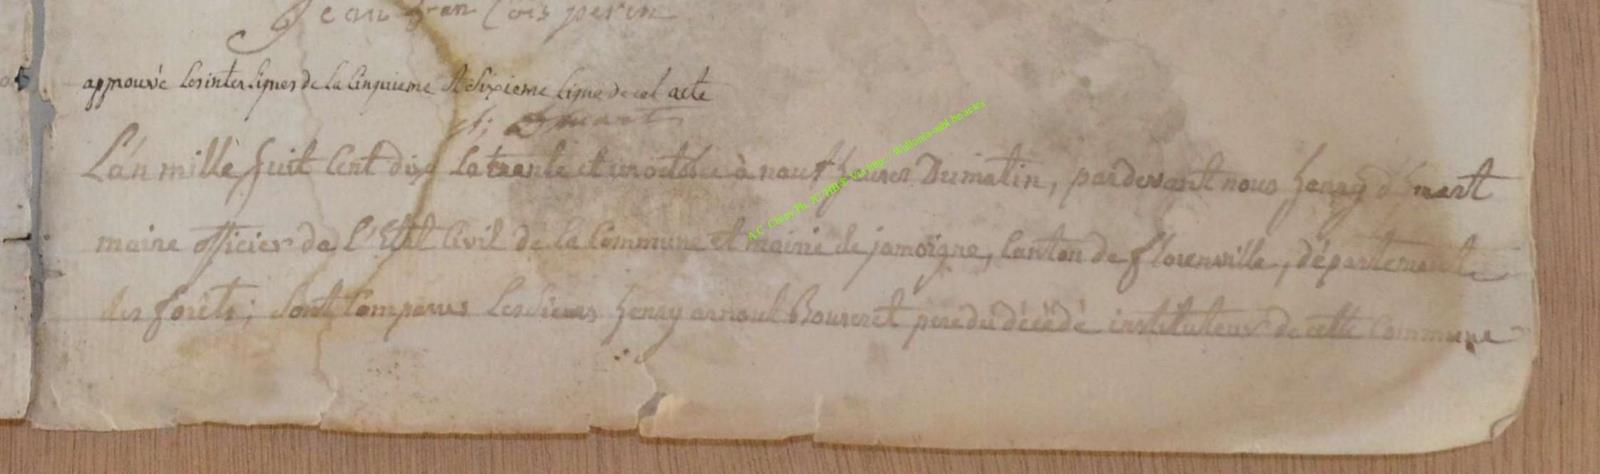 Jean fran Cois perin
approuvé les inter lignes de la Cinquieme et Sixieme ligne de cet acte
L'an mille huit Cent dix le trente et un octobre à neuf heures Dumatin, pardevant nous henry
maire officier de l'Etat Civil de la Commune et mairie de jamoigne, Canton de florenville, département
des forêts; Sont Comparus Les Sieurs henry arnoul Bourcret pere du décédé instituteur de cette Commune